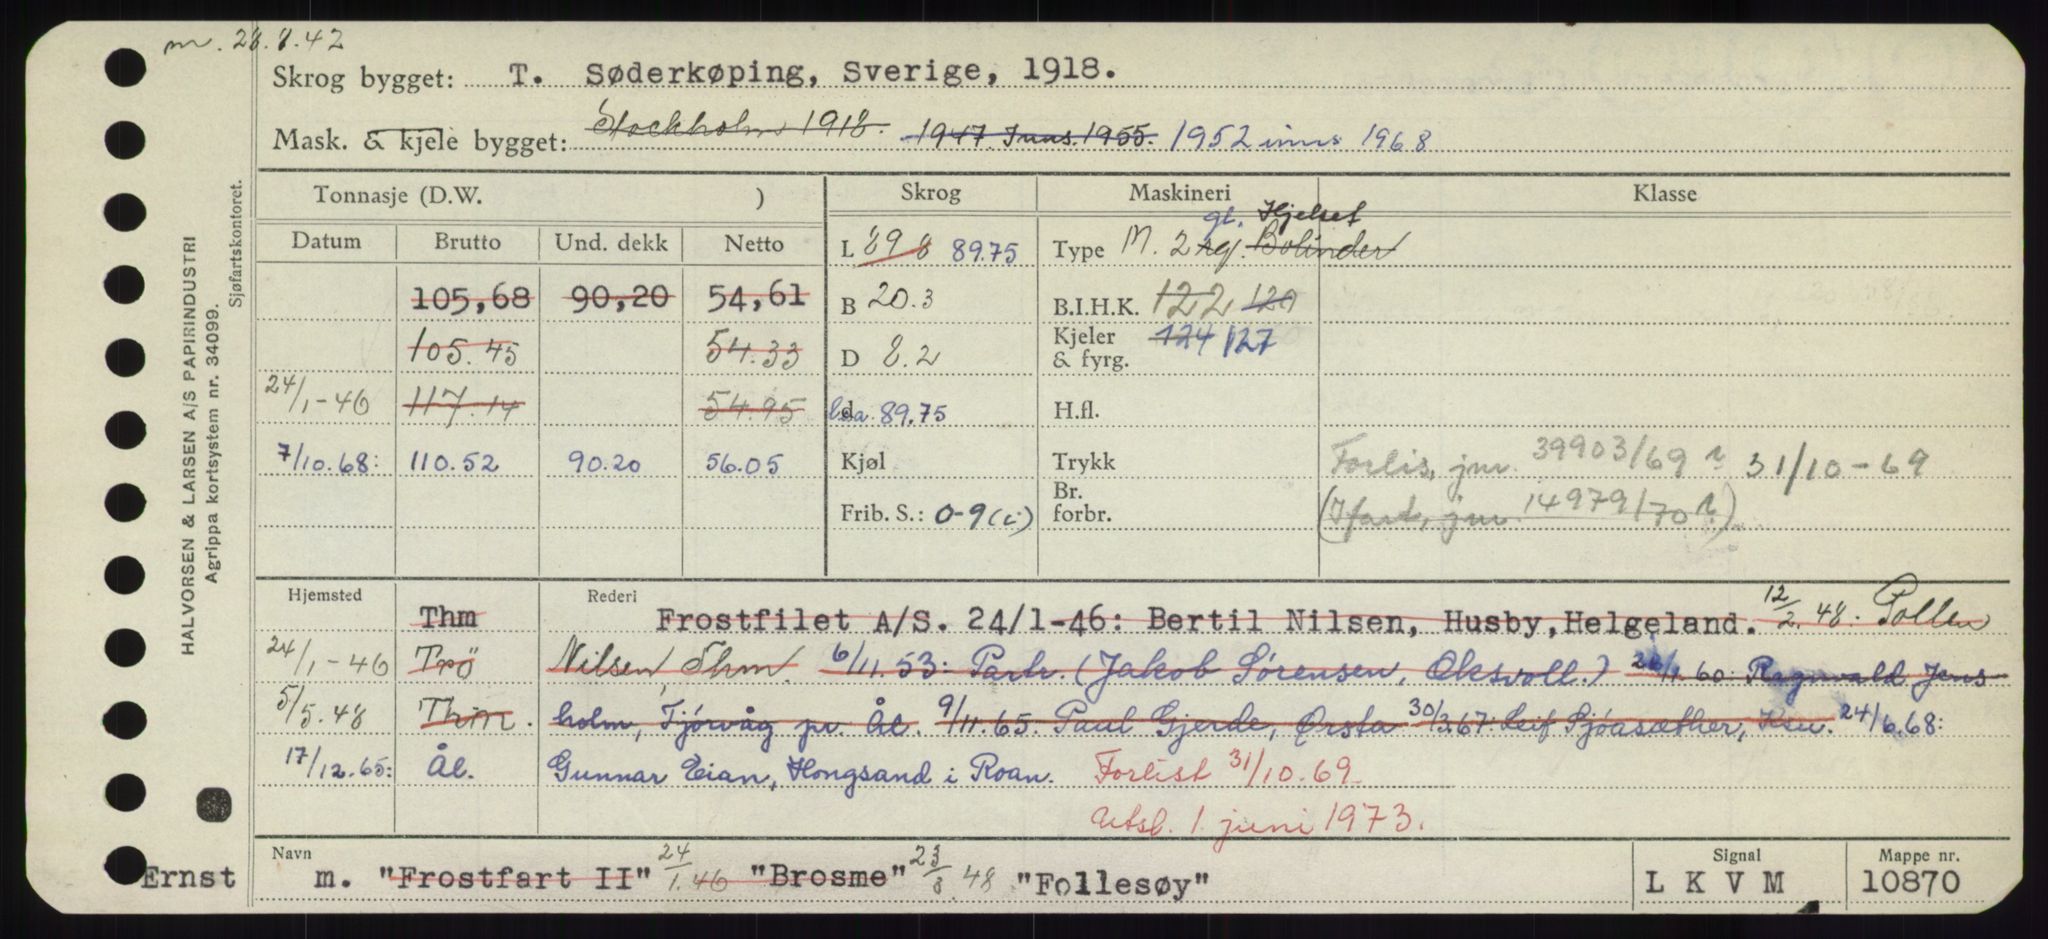 m. 28.8.42
Skrog bygget: T. Søderkøping, Sverige, 1918.
Mask. & kjele bygget: Stockholm 1918. 1947 Inns. 1955. 1952 inns 1968
HALVORSEN & LARSEN A/S PAPIRINDUSTRI
Agrippa kortsystem nr. 34099.
Sjøfartskontoret.
Tonnasje (D.W. ) Skrog Maskineri Klasse
Datum Brutto Und. dekk Netto
L 89.8 89.75 Type M. 2 sg. Bolinder gl. Hjelset
105,68 90,20 54,61 B 20.3 B.I.H.K. 122 120
105.45 54.33 D 8.2 Kjeler & fyrg. 124 127
24/1-46 117.14 54.95 d l.o.a. 89.75 H.fl.
7/10.68: 110.52 90.20 56.05 Kjøl Trykk Forlis, jnr. 39903/69 31/10-69
Frib. S.: 0-9 (i) Br. forbr. jnr. 14979/70
Hjemsted Rederi
Thm Frostfilet A/S. 24/1-46: Bertil Nilsen, Husby, Helgeland. 12/2.48: Pollen
24/1-46 Trö Nilsen, Thm. 6/11.53: Partr. (Jakob Sørensen, Oksvoll.) 26/1.60: Ragnvald Jens-
5/5.48 Thm. holm, Tjørvåg pr. Ål. 9/11.65. Paul Gjerde, Ørsta 30/3.67: Leif Sjøasæther, Ksu. 24/6.68:
17/12.65: Ål. Gunnar Eian, Hongsand i Roan. Forlist 31/10.69
Utsl. 1. juni 1973.
Navn Signal Mappe nr.
Ernst m. "Frostfart II" 24/1.46 "Brosme" 23/8 48 "Follesøy" L K V M 10870